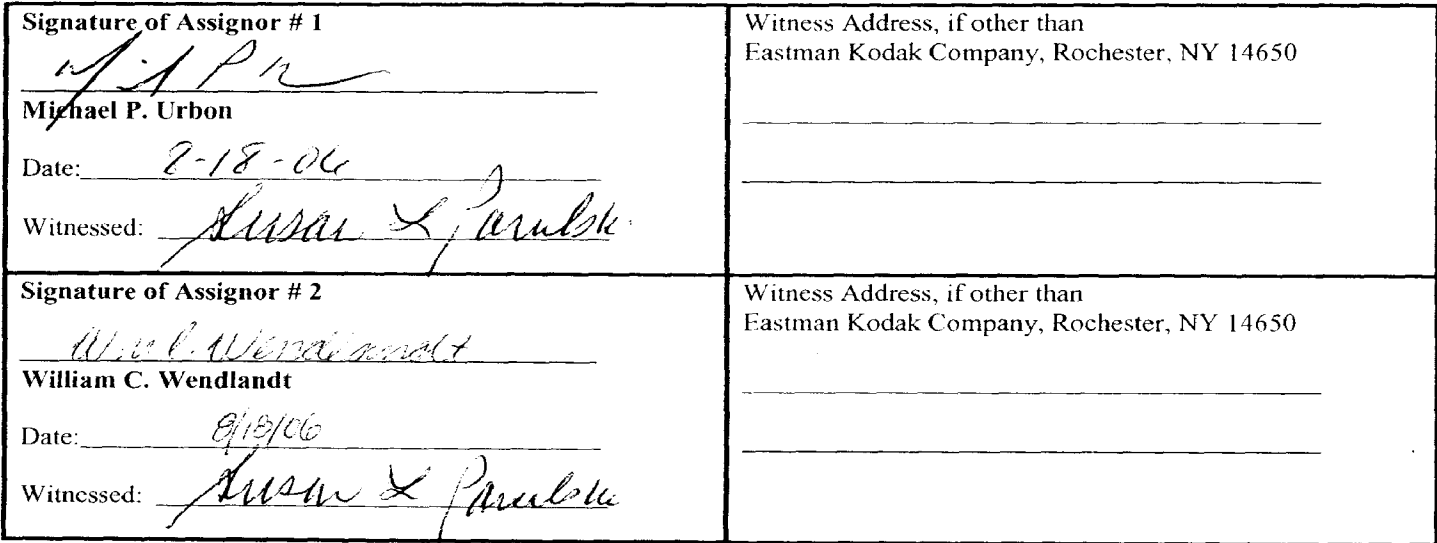 Signature of Assignor # 1
Michael P. Urbon
Date: 8-18-06
Witnessed: Susan L Parulski
Witness Address, if other than
Eastman Kodak Company, Rochester, NY 14650
Signature of Assignor # 2
Wm C. Wendlandt
William C. Wendlandt
Date: 8/18/06
Witnessed: Susan L Parulski
Witness Address, if other than
Eastman Kodak Company, Rochester, NY 14650